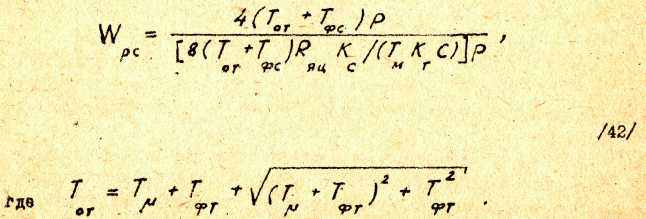 W_рс = 4(T_от + T_фс)p / [8(T_от + T_фс)R_яц K_с /(T_м K_т C)]p ,
/42/
где T_от = T_μ + T_фт + √((T_μ + T_фт)² + T_фт²) .